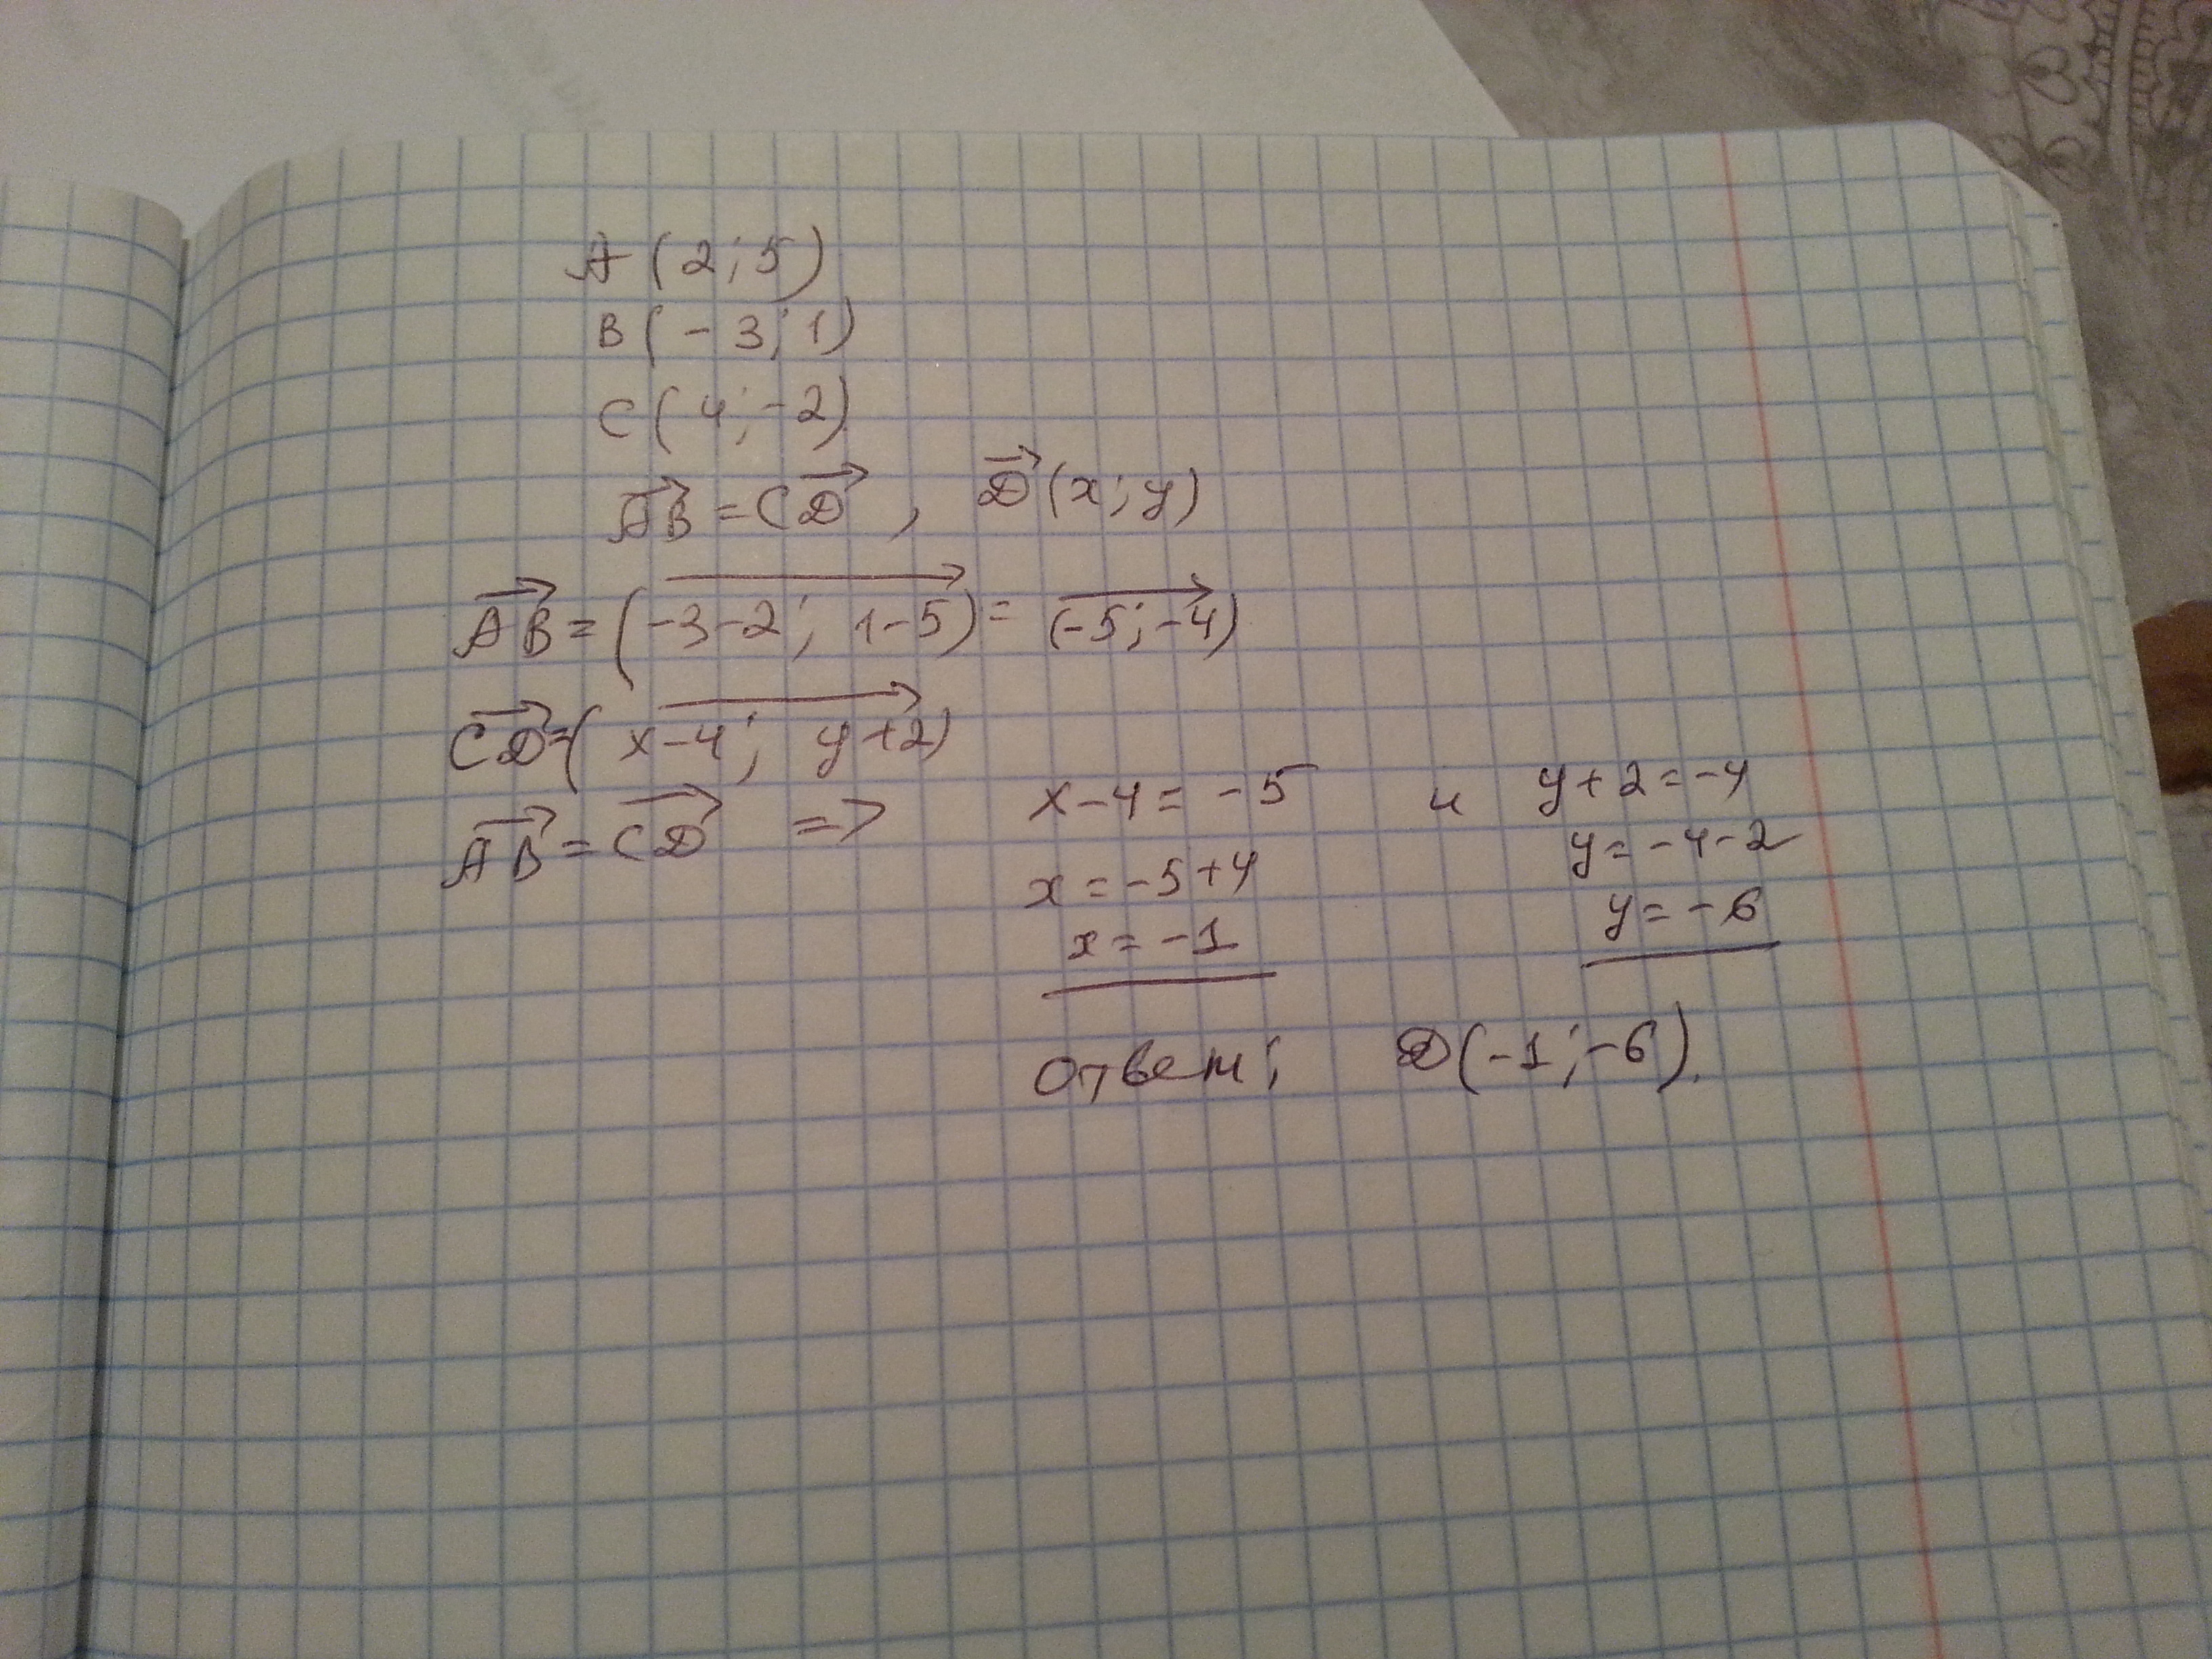 A(2; 5)
B(-3; 1)
C(4; -2)
AB = CD, D(x; y)
AB = (-3-2; 1-5) = (-5; -4)
CD = (x-4; y+2)
AB = CD => x-4 = -5 и y+2 = -4
x = -5+4 y = -4-2
x = -1 y = -6
Ответ; D(-1; -6).